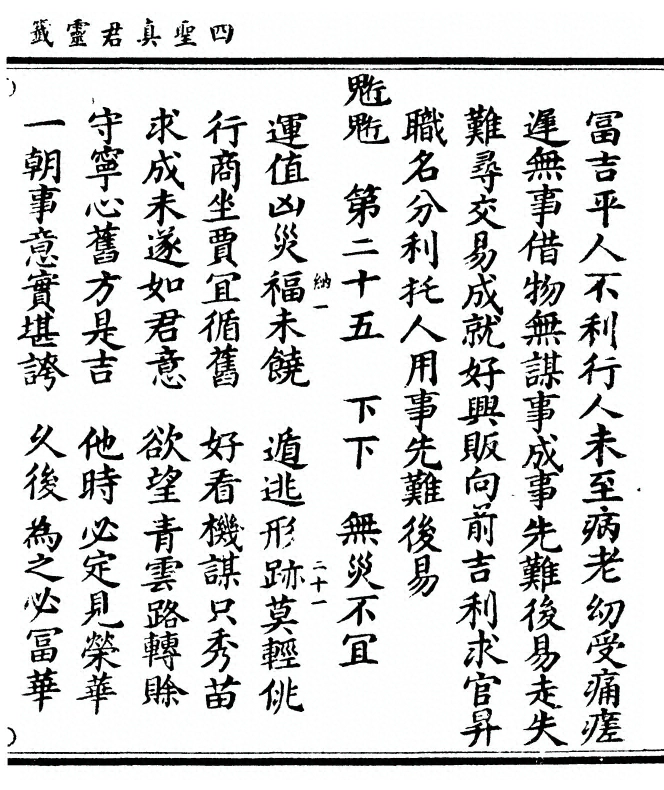 四聖真君靈籤
冨吉平人不利行人未至病老幼受痛瘥
遲無事借物無謀事成事先難後易走失
難尋交易成就好興販向前吉利求官昇
職名分利托人用事先難後易
第二十五 下下 無災不冝
納一 二十一
運值凶災福未饒 遁逃形跡莫輕佻
行商坐賈冝循舊 好看機謀只秀苗
求成未遂如君意 欲望青雲路轉賒
守寧心舊方是吉 他時必定見榮華
一朝事意實堪誇 久後為之必冨華